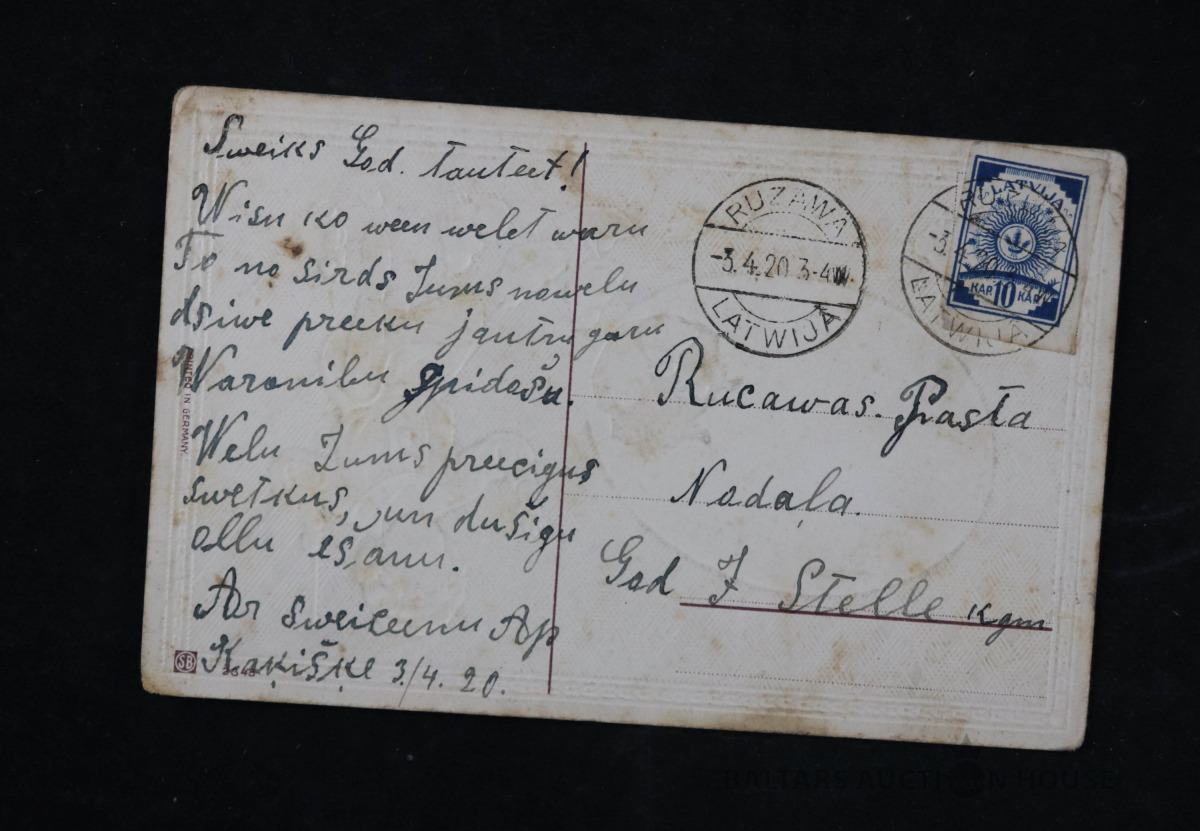 Sweiks God. tauteet!
Wisu ko ween welet waru
To no sirds Jums nowelu
dsiwe preeku jautru garu
Waronibu Spidošu.
Welu Jums preecigus
swetkus, un dušigu
ollu ešanu.
Ar sweiceenu Ap
Kaķišķe 3/4. 20.
PRINTED IN GERMANY.
SB
RUZAWA
-3.4.20 3-4W.
LATWIJÂ
LATVIJA
KAP 10 KAP
RUZAWA
-3.4.20
LATWIJÂ
Rucawas. Pasta
Nodaļa.
God J Stelle kgm
BALTARS AUCTION HOUSE